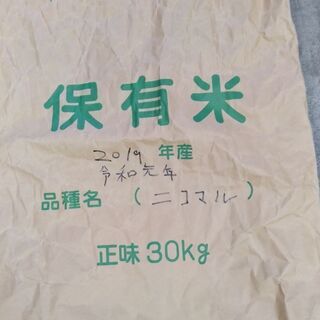 保有米
2019年産
令和元年
品種名（ニコマル）
正味30kg